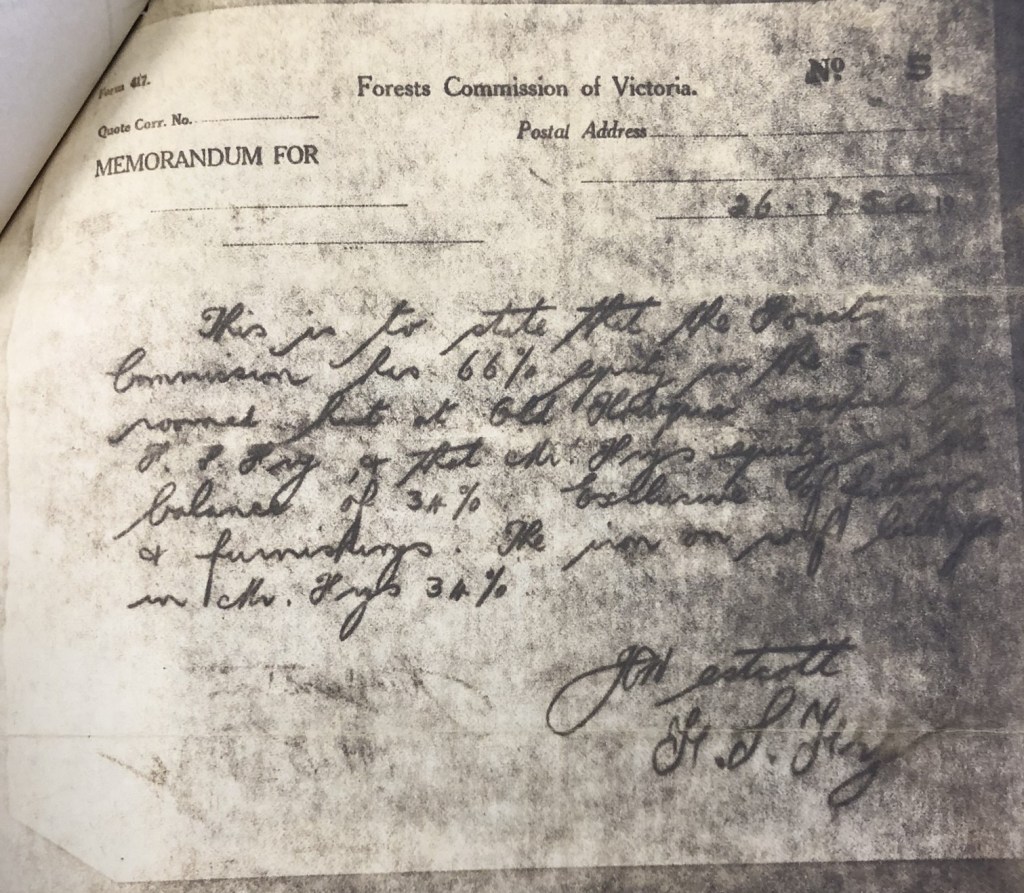 Form 417.
Forests Commission of Victoria.
No 5
Quote Corr. No.
Postal Address
MEMORANDUM FOR
26. 7 50
This is to state that the Forests
Commission has 66% equity in the 5
roomed hut at Old occupied by
F. S. Fry, & that Mr. Frys equity is the
balance of 34% Exclusive of
& furnishings. The iron on roof
in Mr. Frys 34%
J Westcott
F. S. Fry